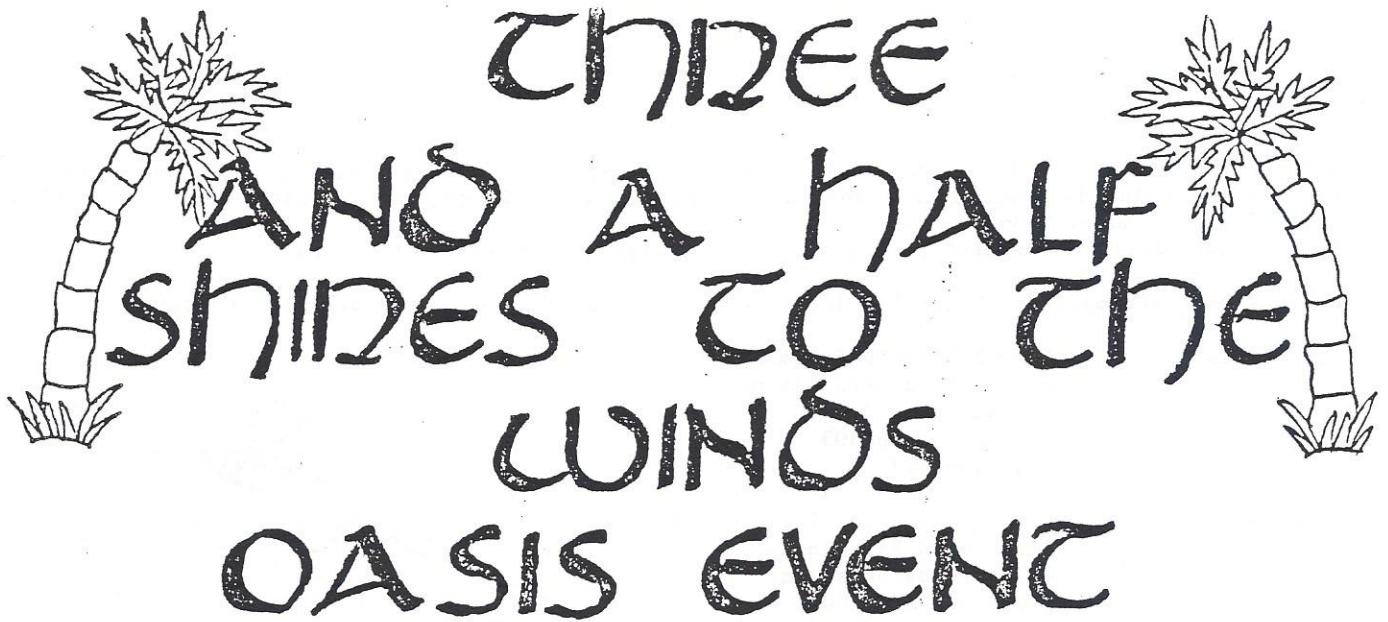 THREE
AND A HALF
SHIRES TO THE
WINDS
OASIS EVENT